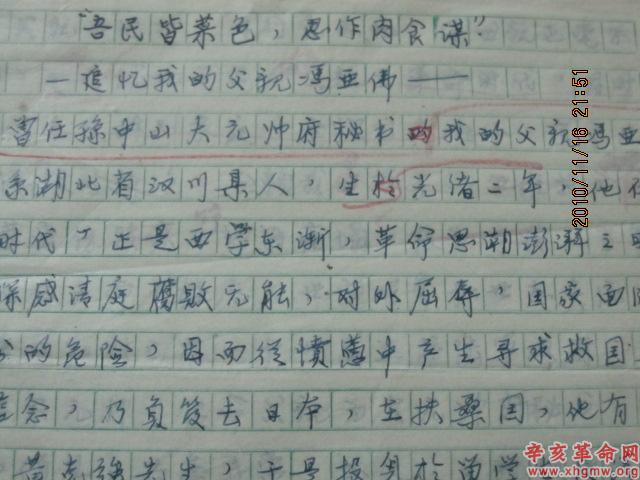 "吾民皆菜色，忍作肉食谋"
—追忆我的父亲冯亚佛——
曾任孙中山大元帅府秘书的我的父亲冯亚
系湖北省汉川县人 生于光绪二年，他
时代，正是西学东渐，革命思潮澎湃之
深感清庭腐败无能，对外屈辱，国家面
的危险，因而从愤懑中产生寻求救国
信念，乃负笈去日本，在扶桑国，他有
黄克强先生，于是投身于留学
2010/11/16 21:51
辛亥革命网
www.xhgmw.org